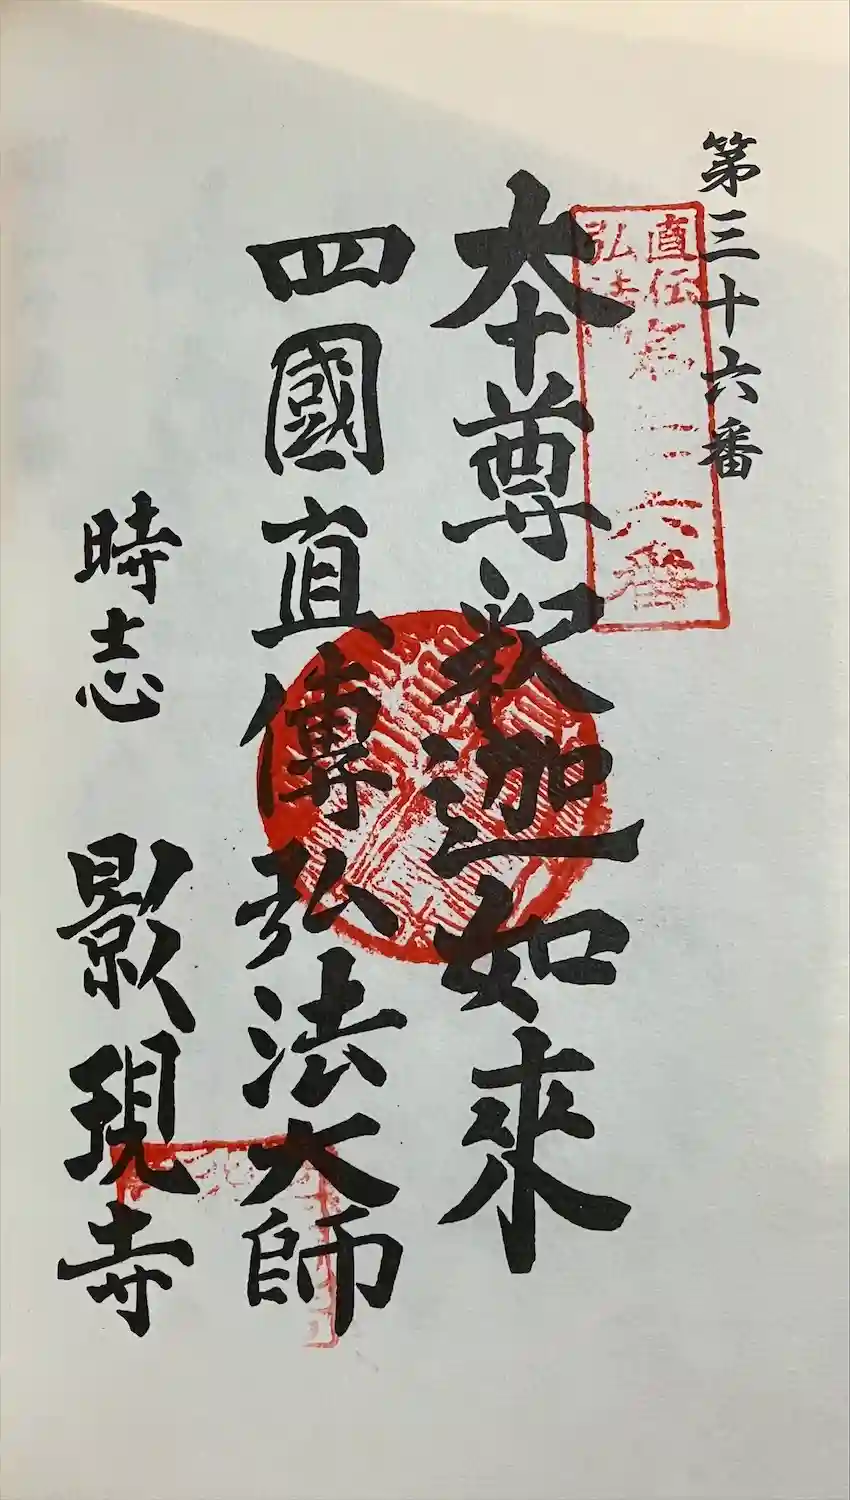 第三十六番
直伝 第三六番
弘法
本尊釈迦如來
四國直傳弘法大師
時志 影現寺